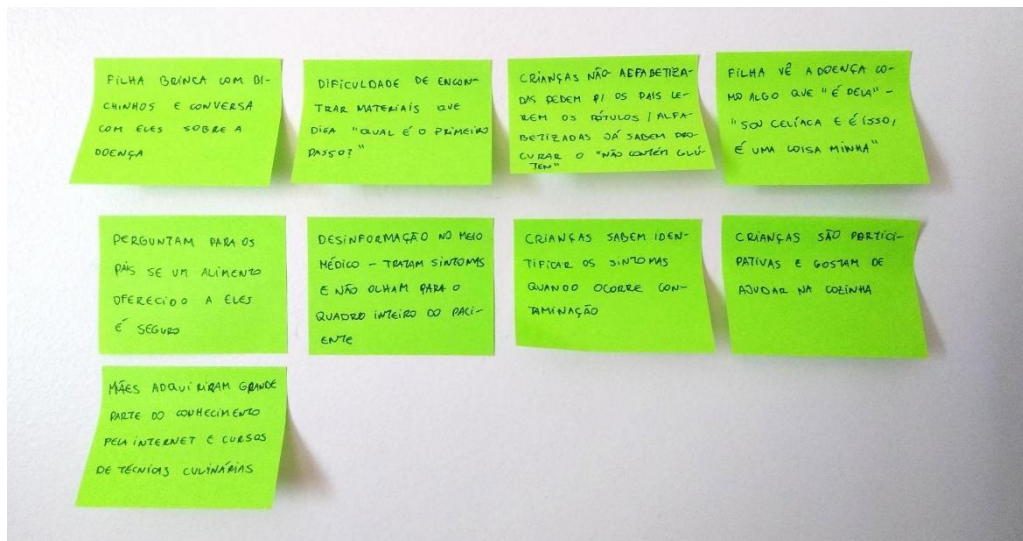 FILHA BRINCA COM BI-
CHINHOS E CONVERSA
COM ELES SOBRE A
DOENÇA
DIFICULDADE DE ENCON-
TRAR MATERIAIS QUE
DIGA "QUAL É O PRIMEIRO
PASSO?"
CRIANÇAS NÃO ALFABETIZA-
DAS PEDEM P/ OS PAIS LE-
REM OS RÓTULOS / ALFA-
BETIZADAS JÁ SABEM PRO-
CURAR O "NÃO CONTÉM GLÚ-
TEN"
FILHA VÊ A DOENÇA CO-
MO ALGO QUE "É DELA" -
"SOU CELÍACA E É ISSO,
É UMA COISA MINHA"
PERGUNTAM PARA OS
PAIS SE UM ALIMENTO
OFERECIDO A ELES
É SEGURO
DESINFORMAÇÃO NO MEIO
MÉDICO - TRATAM SINTOMAS
E NÃO OLHAM PARA O
QUADRO INTEIRO DO PACI-
ENTE
CRIANÇAS SABEM IDEN-
TIFICAR OS SINTOMAS
QUANDO OCORRE CON-
TAMINAÇÃO
CRIANÇAS SÃO PARTICI-
PATIVAS E GOSTAM DE
AJUDAR NA COZINHA
MÃES ADQUIRIRAM GRANDE
PARTE DO CONHECIMENTO
PELA INTERNET E CURSOS
DE TÉCNICAS CULINÁRIAS